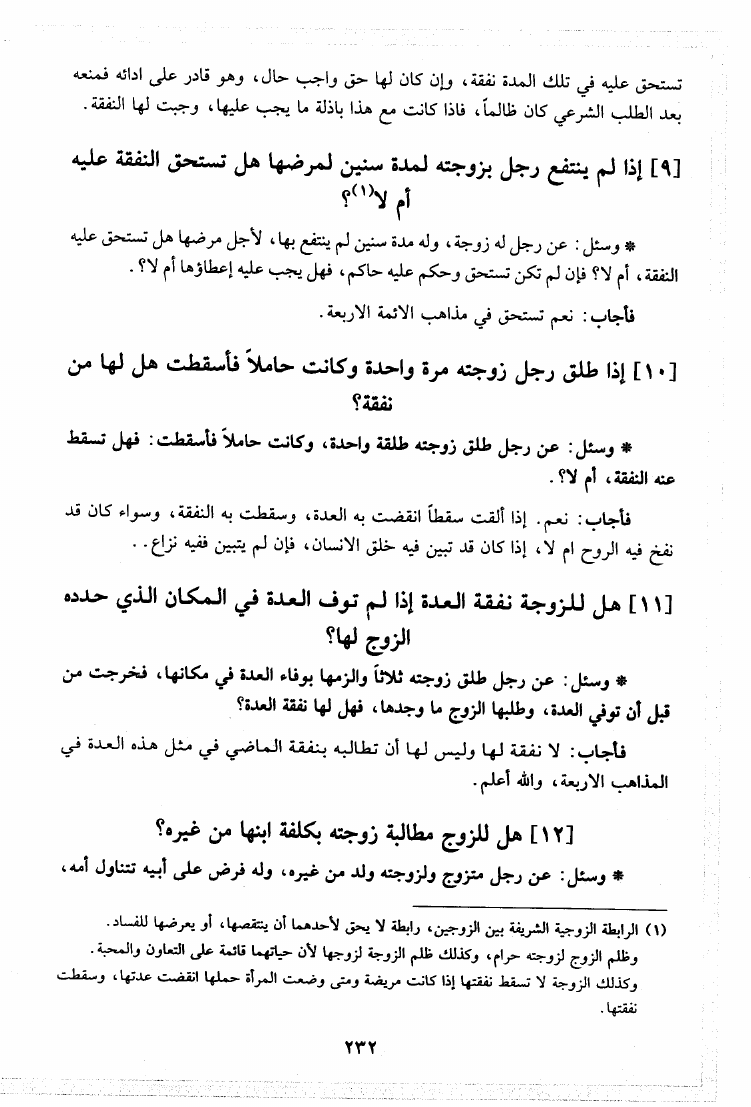 تستحق عليه في تلك المدة نفقة، وإن كان لها حق واجب حال، وهو قادر على ادائه فمنعه
بعد الطلب الشرعي كان ظالماً، فاذا كانت مع هذا باذلة ما يجب عليها، وجبت لها النفقة.
[٩] إذا لم ينتفع رجل بزوجته لمدة سنين لمرضها هل تستحق النفقة عليه
أم لا(١)؟
* وسئل: عن رجل له زوجة، وله مدة سنين لم ينتفع بها، لأجل مرضها هل تستحق عليه
النفقة، أم لا؟ فإن لم تكن تستحق وحكم عليه حاكم، فهل يجب عليه إعطاؤها أم لا؟.
فأجاب: نعم تستحق في مذاهب الائمة الاربعة.
[١٠] إذا طلق رجل زوجته مرة واحدة وكانت حاملاً فأسقطت هل لها من
نفقة؟
* وسئل: عن رجل طلق زوجته طلقة واحدة، وكانت حاملاً فأسقطت: فهل تسقط
عنه النفقة، أم لا؟.
فأجاب: نعم. إذا ألقت سقطاً انقضت به العدة، وسقطت به النفقة، وسواء كان قد
نفخ فيه الروح ام لا، إذا كان قد تبين فيه خلق الانسان، فإن لم يتبين ففيه نزاع. .
[١١] هل للزوجة نفقة العدة إذا لم توف العدة في المكان الذي حدده
الزوج لها؟
* وسئل: عن رجل طلق زوجته ثلاثاً والزمها بوفاء العدة في مكانها، فخرجت من
قبل أن توفي العدة، وطلبها الزوج ما وجدها، فهل لها نفقة العدة؟
فأجاب: لا نفقة لها وليس لها أن تطالبه بنفقة الماضي في مثل هذه العدة في
المذاهب الاربعة، والله أعلم.
[١٢] هل للزوج مطالبة زوجته بكلفة ابنها من غيره؟
* وسئل: عن رجل متزوج ولزوجته ولد من غيره، وله فرض على أبيه تتناول أمه،
(١) الرابطة الزوجية الشريفة بين الزوجين، رابطة لا يحق لأحدهما أن ينتقصها، أو يعرضها للفساد.
وظلم الزوج لزوجته حرام، وكذلك ظلم الزوجة لزوجها لأن حياتهما قائمة على التعاون والمحبة.
وكذلك الزوجة لا تسقط نفقتها إذا كانت مريضة ومتى وضعت المرأة حملها انقضت عدتها، وسقطت
نفقتها.
٢٣٢